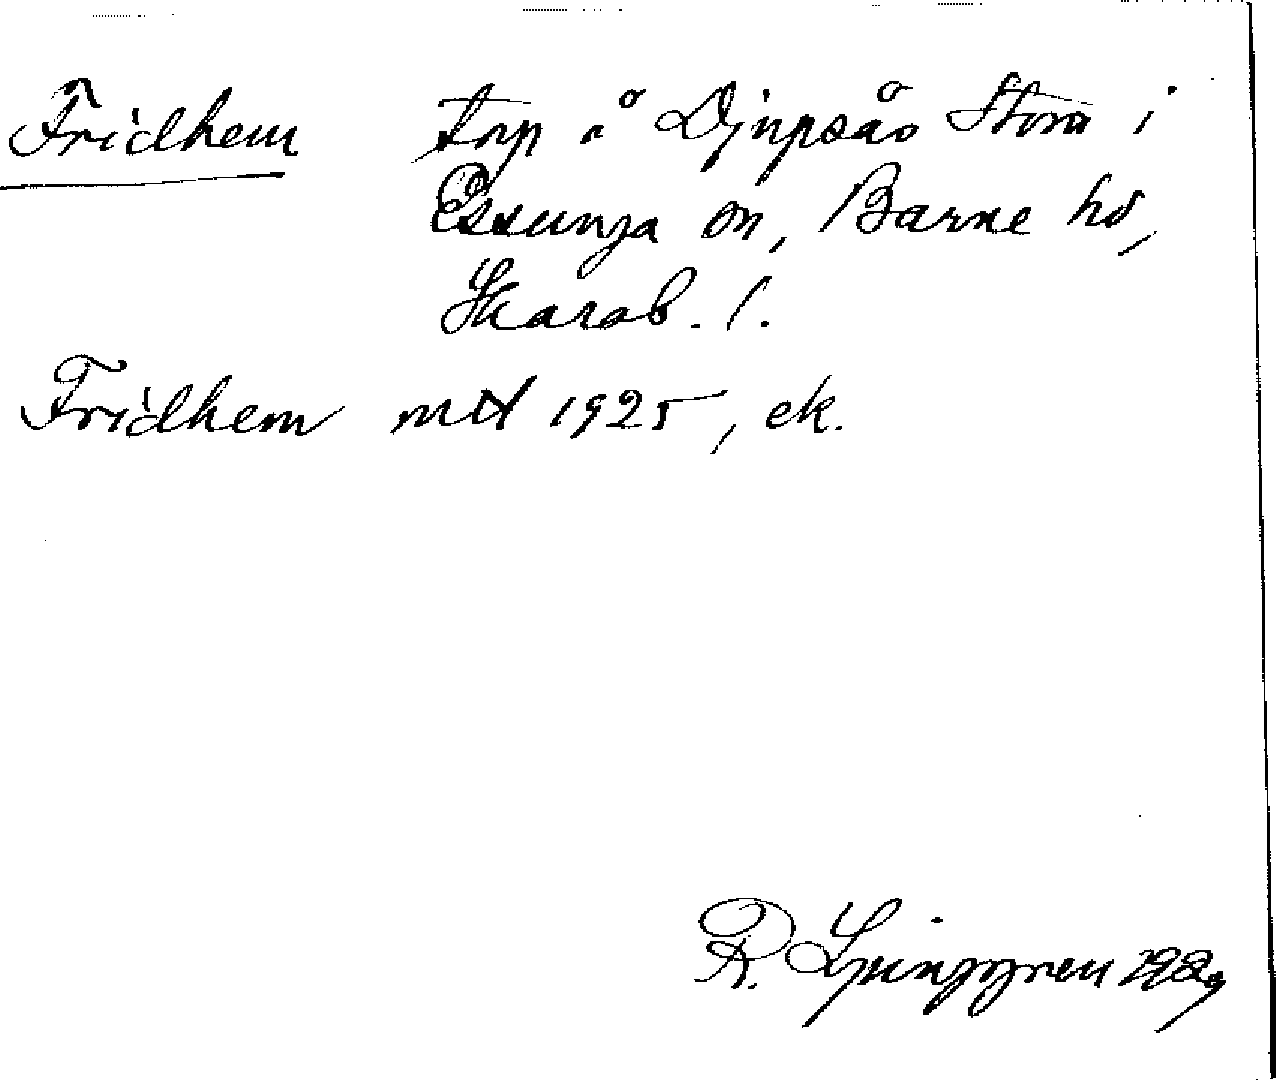 Fridhem torp å Djupsås Stora i
Essunga sn, Barne hd,
Skarab. l.
Fridhem mtl 1925, ek.
R. Ljunggren 1929